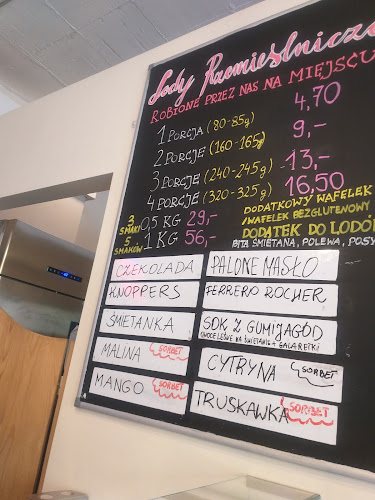 Lody Rzemieślnicze
ROBIONE PRZEZ NAS NA MIEJSCU
1 PORCJA (80-85g) 4,70
2 PORCJE (160-165g) 9,-
3 PORCJE (240-245g) 13,-
4 PORCJE (320-325g) 16,50
3 SMAKI 0,5 KG 29,-
5 SMAKÓW 1 KG 56,-
DODATKOWY WAFELEK
WAFELEK BEZGLUTENOWY
DODATEK DO LODÓW
BITA ŚMIETANA, POLEWA, POSY
CZEKOLADA
KNOPPERS
ŚMIETANKA
MALINA SORBET
MANGO SORBET
PALONE MASŁO
FERRERO ROCHER
SDK Z GUMIJAGÓD
OWOCE LEŚNE NA ŚMIETANIE + GALARETKI
CYTRYNA SORBET
TRUSKAWKA SORBET